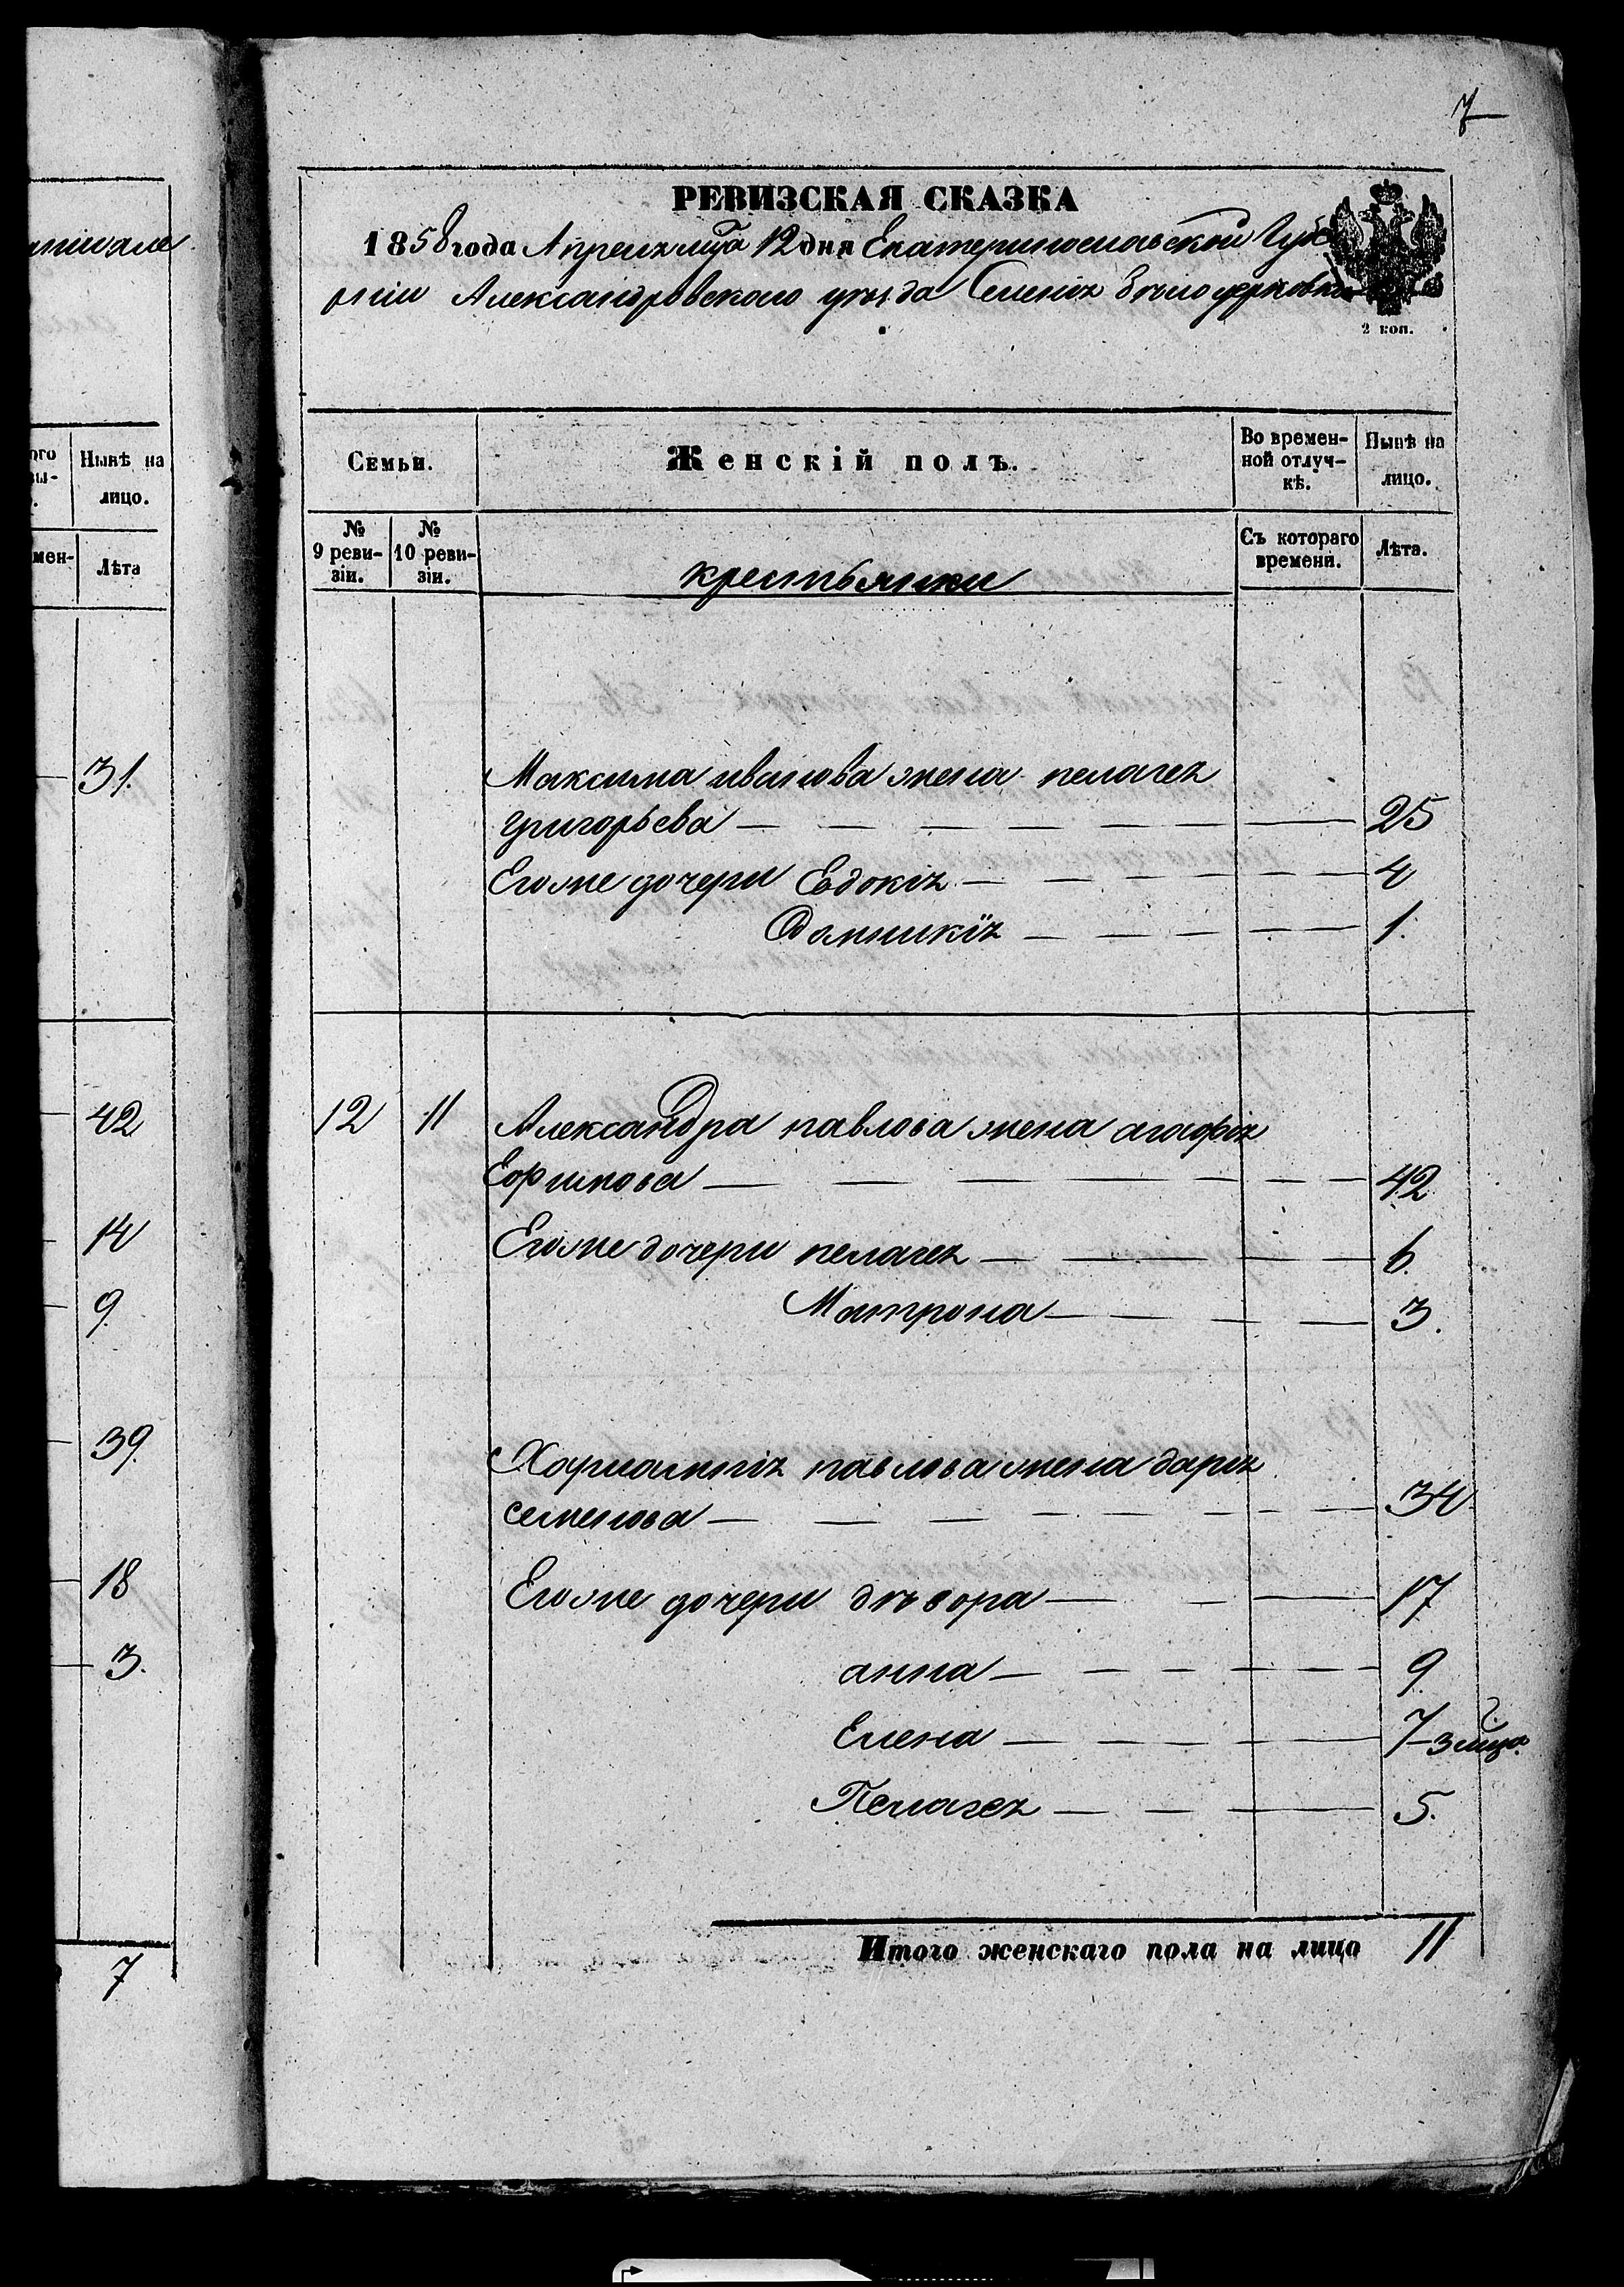 7
РЕВИЗСКАЯ СКАЗКА
1858 года Апреля мца 12 дня Екатеринославской Губе
рніи Александровского уѣзда Селенія Бѣлоцерковки
2 коп.
Семьи.
Женскій полъ.
Во времен-
ной отлуч-
кѣ.
Нынѣ на
лицо.
№
9 реви-
зіи.
№
10 реви-
зіи.
крестьянки
Съ котораго
времени.
Лѣта.
Максима иванова жена пелагея
григорьева 25
Его же дочери Евдокія 4
Домникія 1.
12 11 Александра павлова жена агафія
Ефимова 42
Его же дочери пелагея 6.
Матрона 3.
Харлампія павлова жена дарія
семенова 34
Его же дочери дѣвора 17
анна 9
Елена 7
3 мца
Пелагея 5.
Итого женскаго пола на лицо 11
ого
вы-
Нынѣ на
лицо.
мен-
Лѣта
31.
42
14
9
39.
18
3.
7